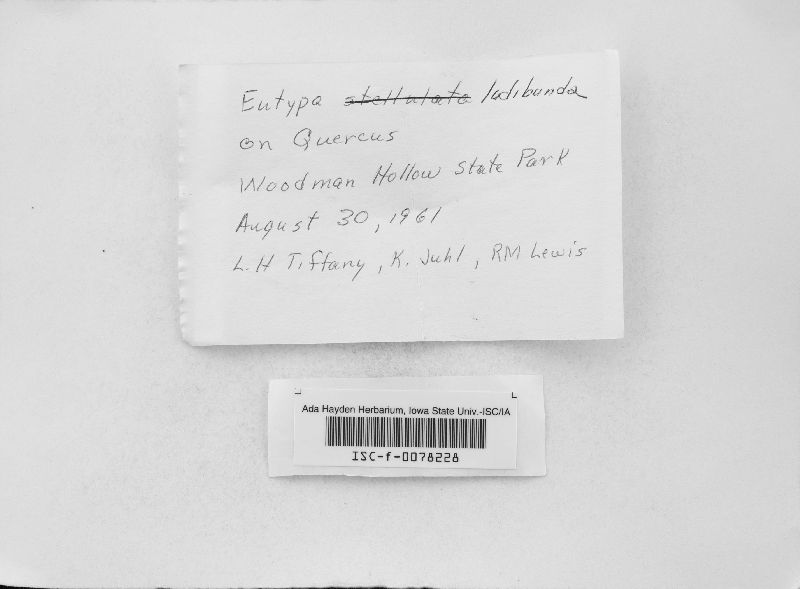 Eutypa stellulata ludibunda
on Quercus
Woodman Hollow State Park
August 30, 1961
L.H Tiffany, K. Juhl, RM Lewis
Ada Hayden Herbarium, Iowa State Univ.-ISC/IA
ISC-f-0078228